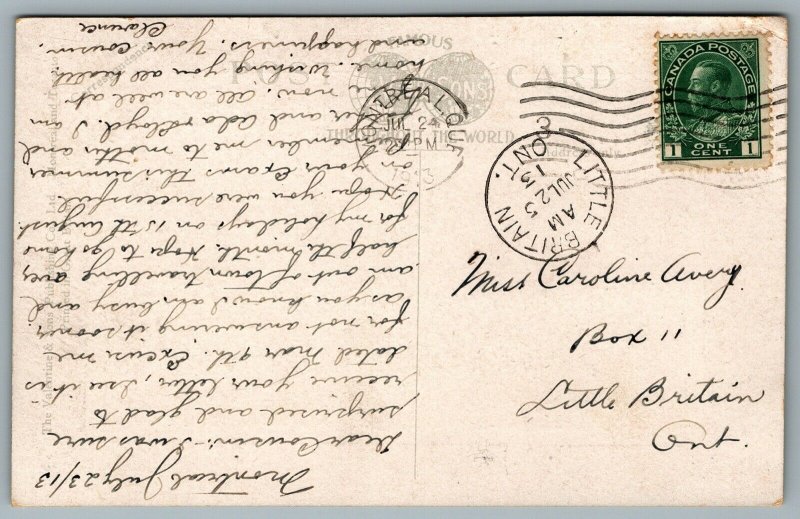 Montreal July 23/13
Dear Cousin:- I was sure
surprised and glad to
receive your letter, I see it is
dated Mar 9th. Excuse me
for not answering it sooner
as you know I am busy and
am out of town travelling every
half the month. Hope to go home
for my holidays on 15th August.
Hope you were successful
on your exams this summer
Remember me to mother and
father and Ada & Lloyd. I am
fine now. all are well at
home. Wishing you all health
and happiness. Your cousin
Clarence
FAMOUS
POST CARD
THROUGHOUT THE WORLD
MONTREAL QUE
JUL 24
PM
1913
LITTLE BRITAIN
AM
JUL 25
13
ONT.
CANADA POSTAGE
1 ONE CENT 1
Miss Caroline Avery
Box 11
Little Britain
Ont.